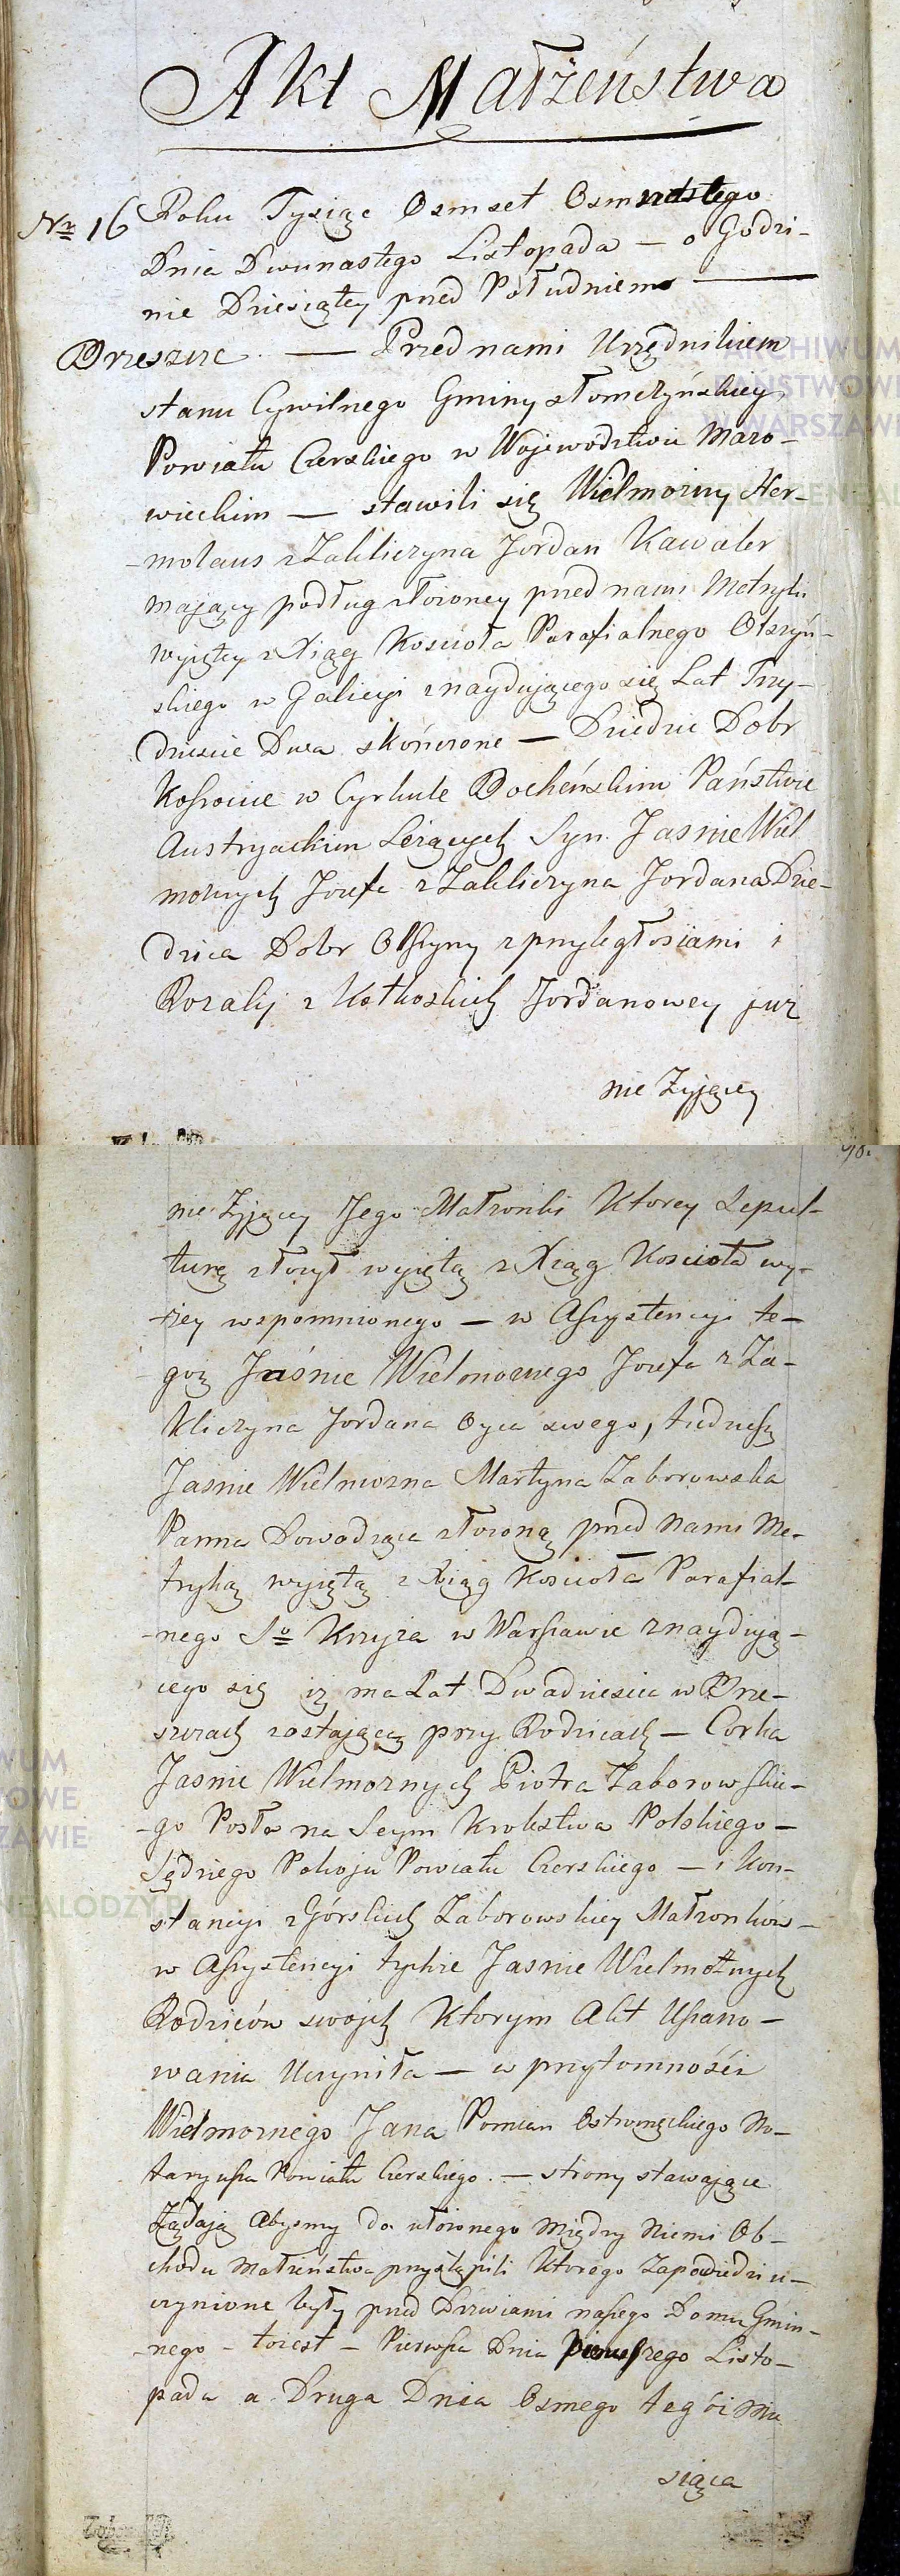 Akt Małżeństwa
Nr 16 Roku Tysiąc Osmset Osmnastego
Dnia Dwunastego Listopada — o Godzi-
nie Dziesiątey przed Południem —
Brzeszcze — Przed nami Urzędnikiem
stanu Cywilnego Gminy Słomczyńskiey
Powiatu Czerskiego w Wojewodztwie Mazo-
wieckim — stawili się Wielmożny Her-
-molaus z Zakliczyna Jordan Kawaler
mający podług złożoney przed nami Metryki
wyiętey z Xiąg Kościoła Parafialnego Olszyń-
skiego w Galicyi znaydującego się Lat Trzy-
dzieście Dwa skończone — Dziedzic Dobr
Kossocice w Cyrkule Bocheńskim Państwie
Austryackim Leżących Syn Jaśnie Wiel
możnych Jozefa z Zakliczyna Jordana Dzie-
dzica Dobr Olszyny z przyległosiami i
Rozalij z Kotkoskich Jordanowey już
nie Żyjącey
nie Żyjącey Jego Małżonki Ktorey Sepul-
turę złożył wyiętą z Xiąg Kościoła wy-
-żey wspomnionego — w Assystencyi te-
goż Jaśnie Wielmożnego Jozefa z Za-
kliczyna Jordana Oyca swego, tudziesz
Jaśnie Wielmożna Martyna Zaborowska
Panna Dowodząca złożoną przed Nami Me-
tryką wyiętą z Xiąg Kościoła Parafial-
-nego So Krzyża w Warszawie znaydują-
cego się iż ma Lat Dwadzieścia w Brze-
szczach zostającą przy Rodzicach — Corka
Jaśnie Wielmożnych Piotra Zaborowskie-
-go Posła na Seym Krolestwa Polskiego —
Sędziego Pokoju Powiatu Czerskiego — i Kon-
stancyi z Górskich Zaborowskiey Małżonków —
w Assystencyi tychże Jaśnie Wielmożnych
Rodziców swojch Ktorym Akt Uszano-
wania Uczyniła — w przytomności
Wielmożnego Jana Pomian Ostromęckiego No-
taryusza Powiatu Czerskiego. — strony stawające
Żądają Abysmy do ułożonego między Niemi Ob-
chodu Małżeństwa przystąpili Ktorego Zapowiedzi u-
czynione były przed Drzwiami naszego Domu Gmin-
-nego — toiest — Pierwsza Dnia Pierwszego Listo-
pada a Druga Dnia Osmego tegoż Mie
siąca